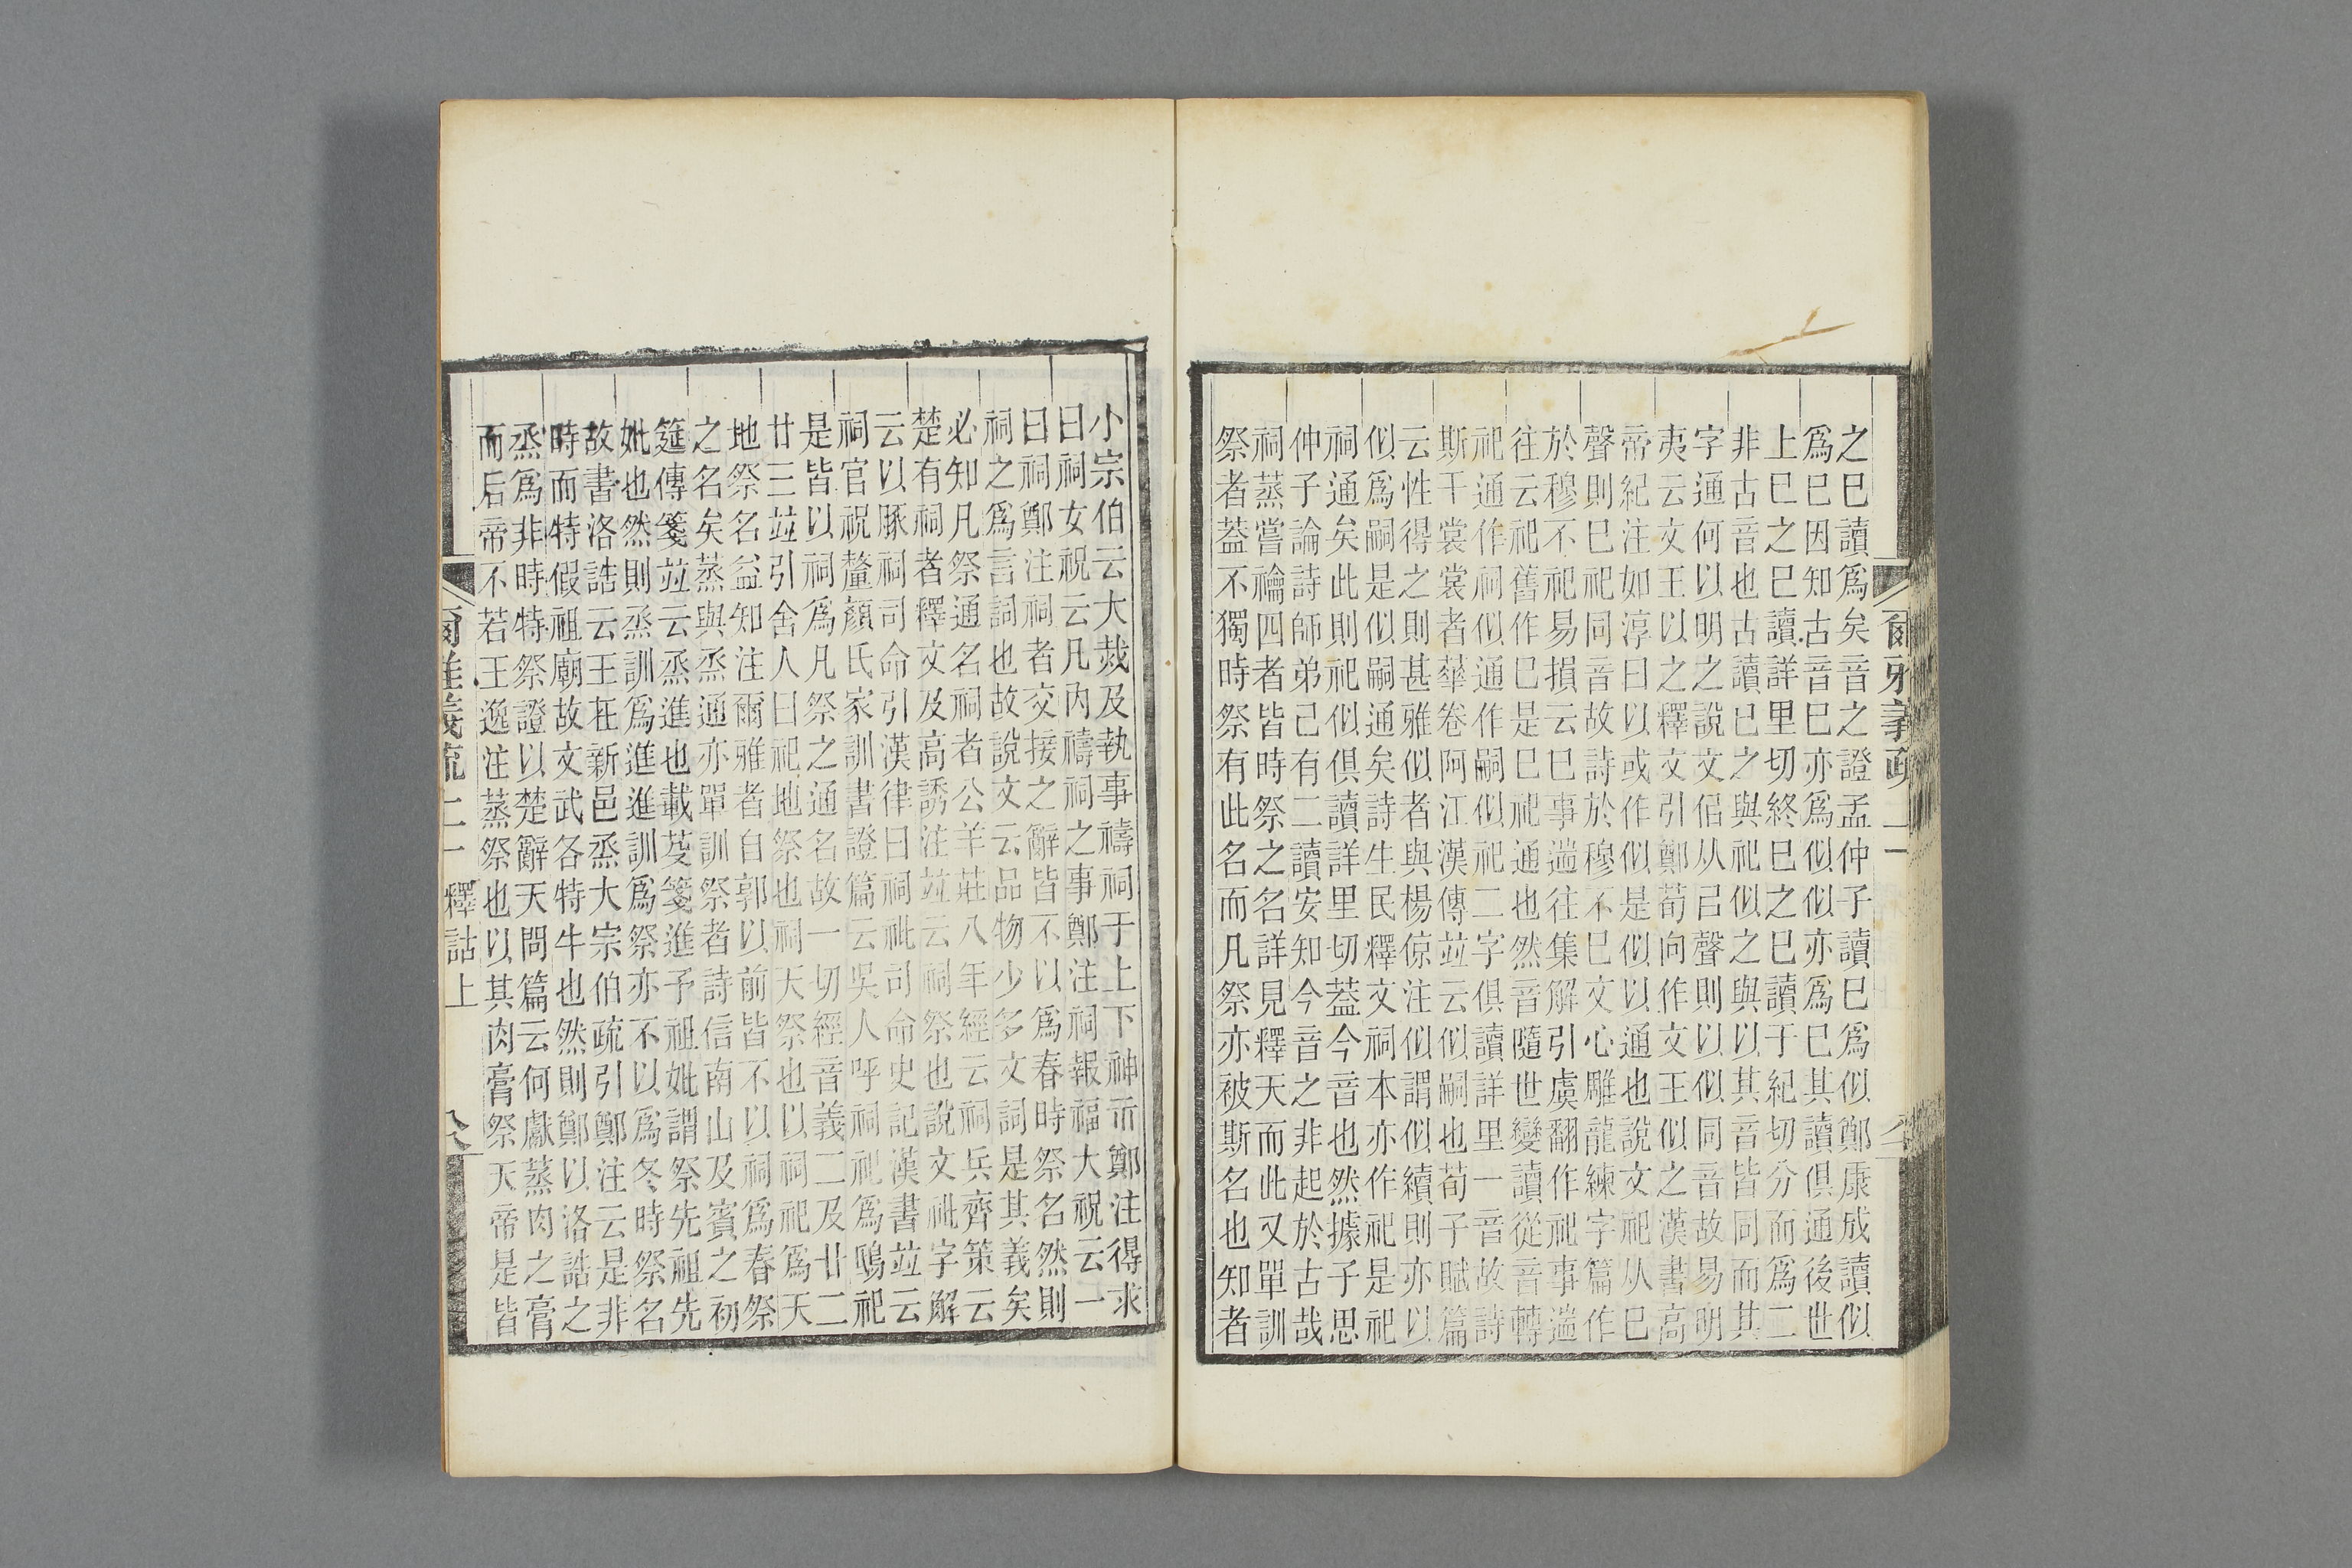 爾雅義疏 上一
之巳讀爲矣音之證孟仲子讀巳爲似鄭康成讀似
爲巳因知古音巳亦爲似似亦爲巳其讀俱通後世
上巳之巳讀詳里切終巳之巳讀于紀切分而爲二
非古音也古讀巳之與祀似之與以其音皆同而其
字通何以明之說文佀从㠯聲則以似同音故易明
夷云文王以之釋文引鄭荀向作文王似之漢書高
帝紀注如淳曰以或作似是似以通也說文祀从巳
聲則巳祀同音故詩於穆不巳文心雕龍練字篇作
於穆不祀易損云巳事遄往集解引虞翻作祀事遄
往云祀舊作巳是巳祀通也然音隨世變讀從音轉
祀通作祠似通作嗣似祀二字俱讀詳里一音故詩
斯干裳裳者華卷阿江漢傳竝云似嗣也荀子賦篇
云性得之則甚雅似者與楊倞注似謂似續則亦以
似爲嗣是似嗣通矣詩生民釋文祠本亦作祀是祀
祠通矣此則祀似俱讀詳里切葢今音也然據子思
仲子論詩師弟己有二讀安知今音之非起於古哉
祠蒸嘗禴四者皆時祭之名詳見釋天而此又單訓
祭者葢不獨時祭有此名而凡祭亦被斯名也知者
小宗伯云大烖及執事禱祠于上下神示鄭注得求
曰祠女祝云凡内禱祠之事鄭注祠報福大祝云一
曰祠鄭注祠者交接之辭皆不以爲春時祭名然則
祠之爲言詞也故說文云品物少多文詞是其義矣
必知凡祭通名祠者公羊莊八年經云祠兵齊策云
楚有祠者釋文及高誘注竝云祠祭也說文䃾字解
云以豚祠司命引漢律曰祠䃾司命史記漢書竝云
祠官祝釐顏氏家訓書證篇云吳人呼祠祀爲鴟祀
是皆以祠爲凡祭之通名故一切經音義二及廿二
廿三竝引舍人曰祀地祭也祠天祭也以祠祀爲天
地祭名益知注爾雅者自郭以前皆不以祠爲春祭
之名矣蒸與烝通亦單訓祭者詩信南山及賓之初
筵傳箋竝云烝進也載芟箋進予祖妣謂祭先祖先
妣也然則烝訓爲進進訓爲祭亦不以爲冬時祭名
故書洛誥云王在新邑烝大宗伯疏引鄭注云是非
時而特假祖廟故文武各特牛也然則鄭以洛誥之
烝爲非時特祭證以楚辭天問篇云何獻蒸肉之膏
而后帝不若王逸注蒸祭也以其肉膏祭天帝是皆
爾雅義疏 上一 釋詁上